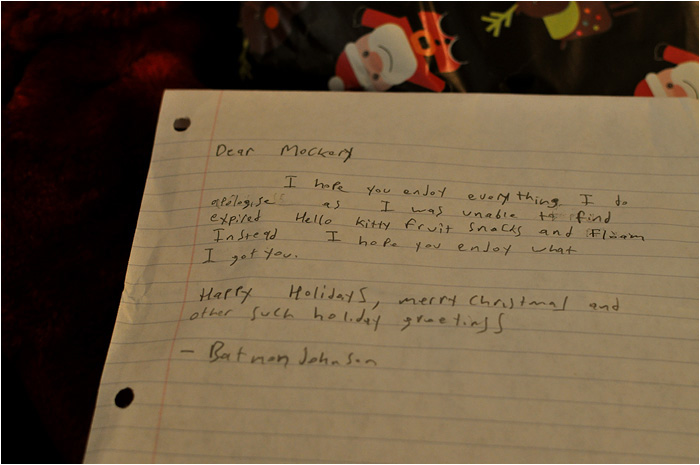 Dear Mockery
I hope you enjoy everything I do
apologise as I was unable to find
expired Hello kitty fruit snacks and Floam
Instead I hope you enjoy what
I got you.
Happy Holidays, merry christmas and
other such holiday greetings
- Batman Johnson